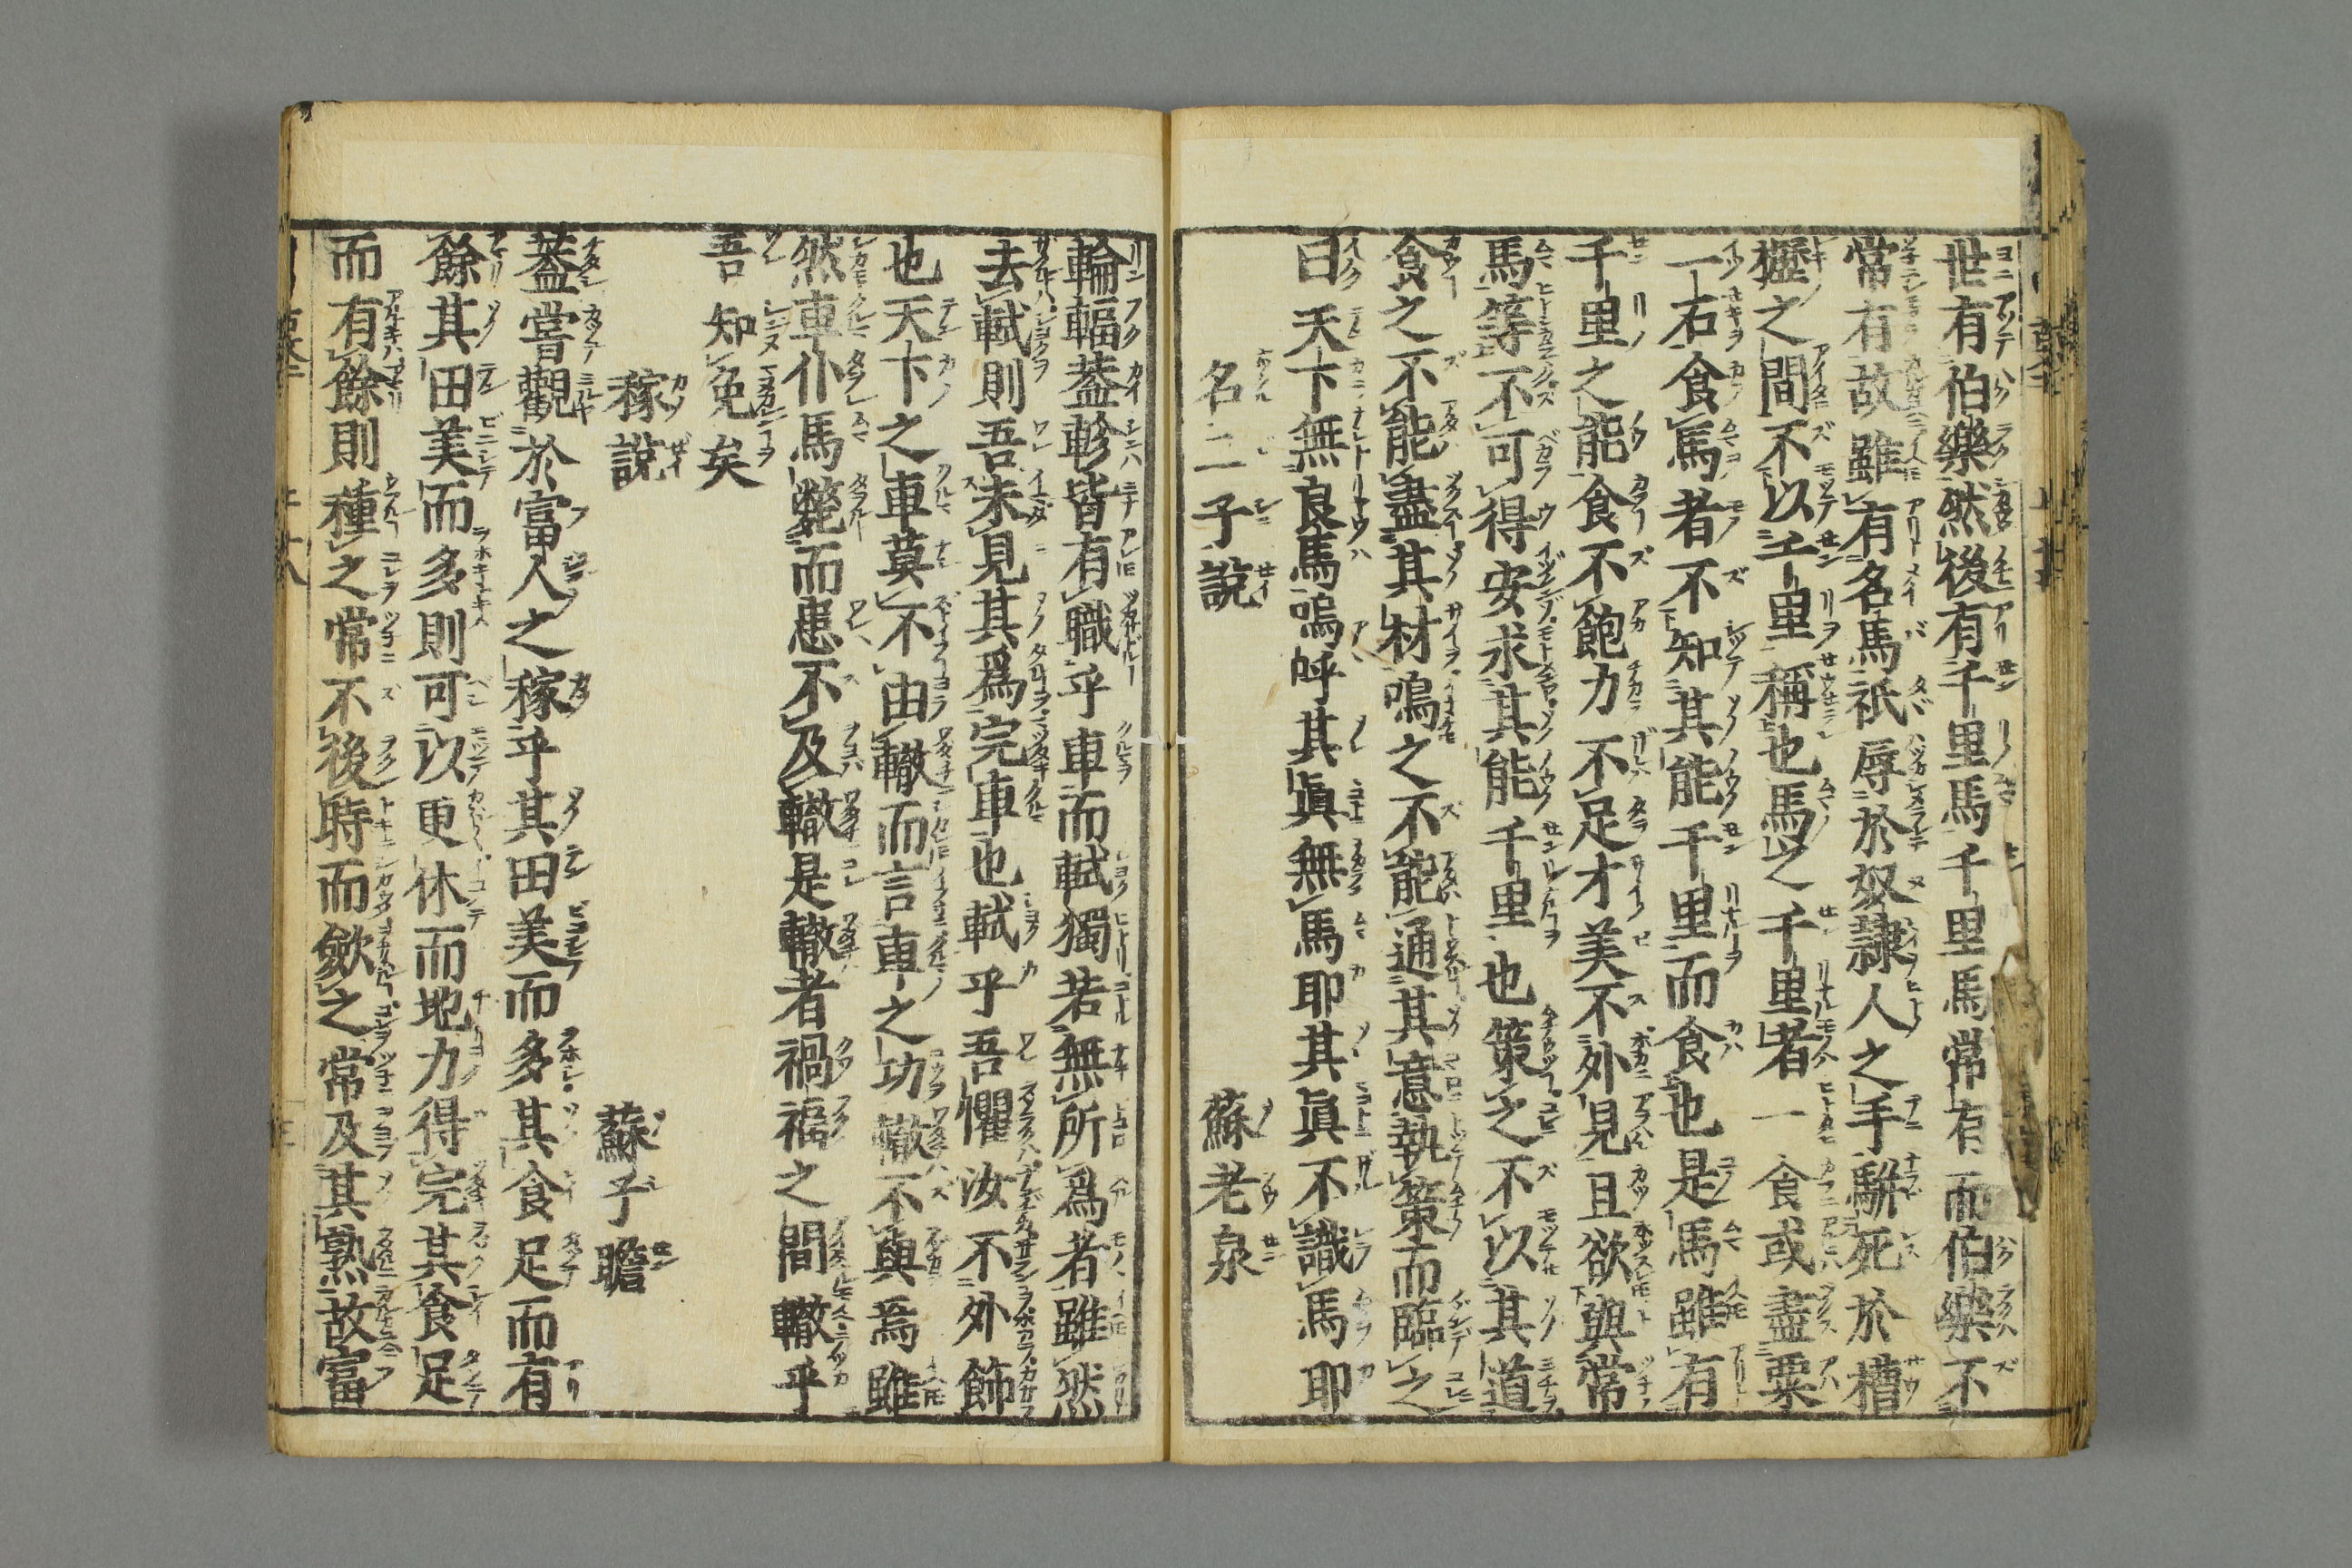 世有伯樂然後有千里馬千里馬常有而伯樂不
常有故雖有名馬祇辱於奴隷人之手駢死於槽
櫪之間不以千里稱也馬之千里者一食或盡粟
一石食馬者不知其能千里而食也是馬雖有
千里之能食不飽力不足才美不外見且欲與常
馬等不可得安求其能千里也策之不以其道
食之不能盡其材鳴之不能通其意執策而臨之
曰天下無良馬嗚呼其眞無馬耶其眞不識馬耶
名二子說 蘇老泉
輪輻蓋軫皆有職乎車而軾獨若無所爲者雖然
去軾則吾未見其爲完車也軾乎吾懼汝不外飾
也天下之車莫不由轍而言車之功轍不與焉雖
然車仆馬斃而患不及轍是轍者禍福之間轍乎
吾知免矣
稼說 蘇子瞻
蓋嘗觀於富人之稼乎其田美而多其食足而有
餘其田美而多則可以更休而地力得完其食足
而有餘則種之常不後時而歛之常及其熟故富